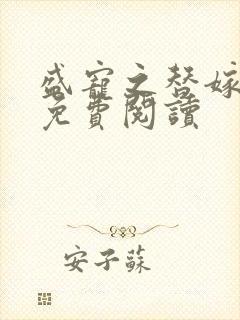 盛寵之替嫁
免費閱讀
安子蘇